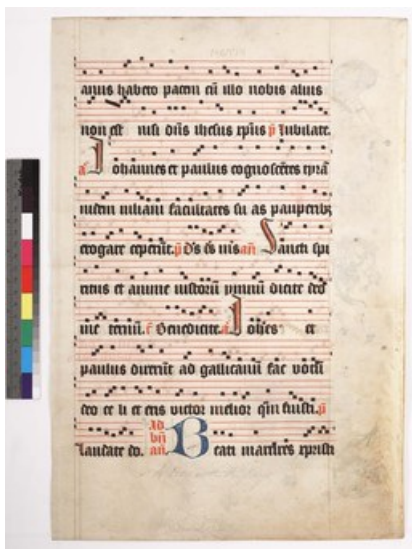 anus habeto pacem cū illo nobis alius
non est nisi dn̄s ihesus xp̄us p̄ Jubilate.
a Johannes et paulus cognoscētes tyrā
nidem iuliani facultates su as pauperibz
erogare ceperūt. p̄ D's ds m's an̄ Sancti spi
ritus et anime iustorū ymnū dicite deo
r̄ Benedicite. a Joh̄es et
paulus dixerūt ad gallicanū fac votū
deo ce li et eris victor melior qm̄ fuisti. p̄
Laudate do. Ad bn̄ an̄ Beati martires xpristi